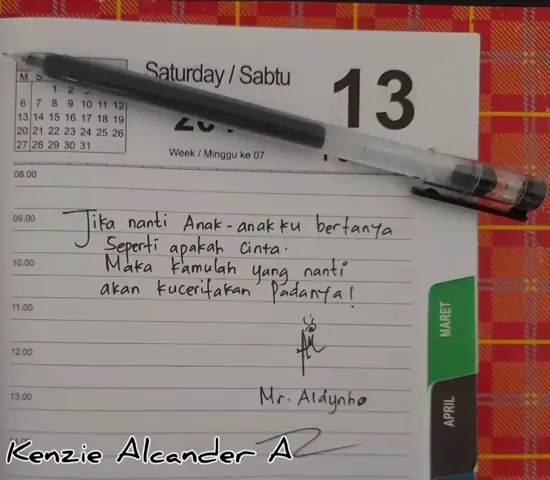 Saturday / Sabtu
13
M S
1 2 3
6 7 8 9 10 11 12
13 14 15 16 17 18 19
20 21 22 23 24 25 26
27 28 29 30 31
Week / Minggu ke 07
08.00
09.00
Jika nanti Anak-anakku bertanya
Seperti apakah cinta.
10.00
Maka kamulah yang nanti
akan kuceritakan Padanya!
11.00
MARET
12.00
13.00
Mr. Aldynho
APRIL
Kenzie Alcander A